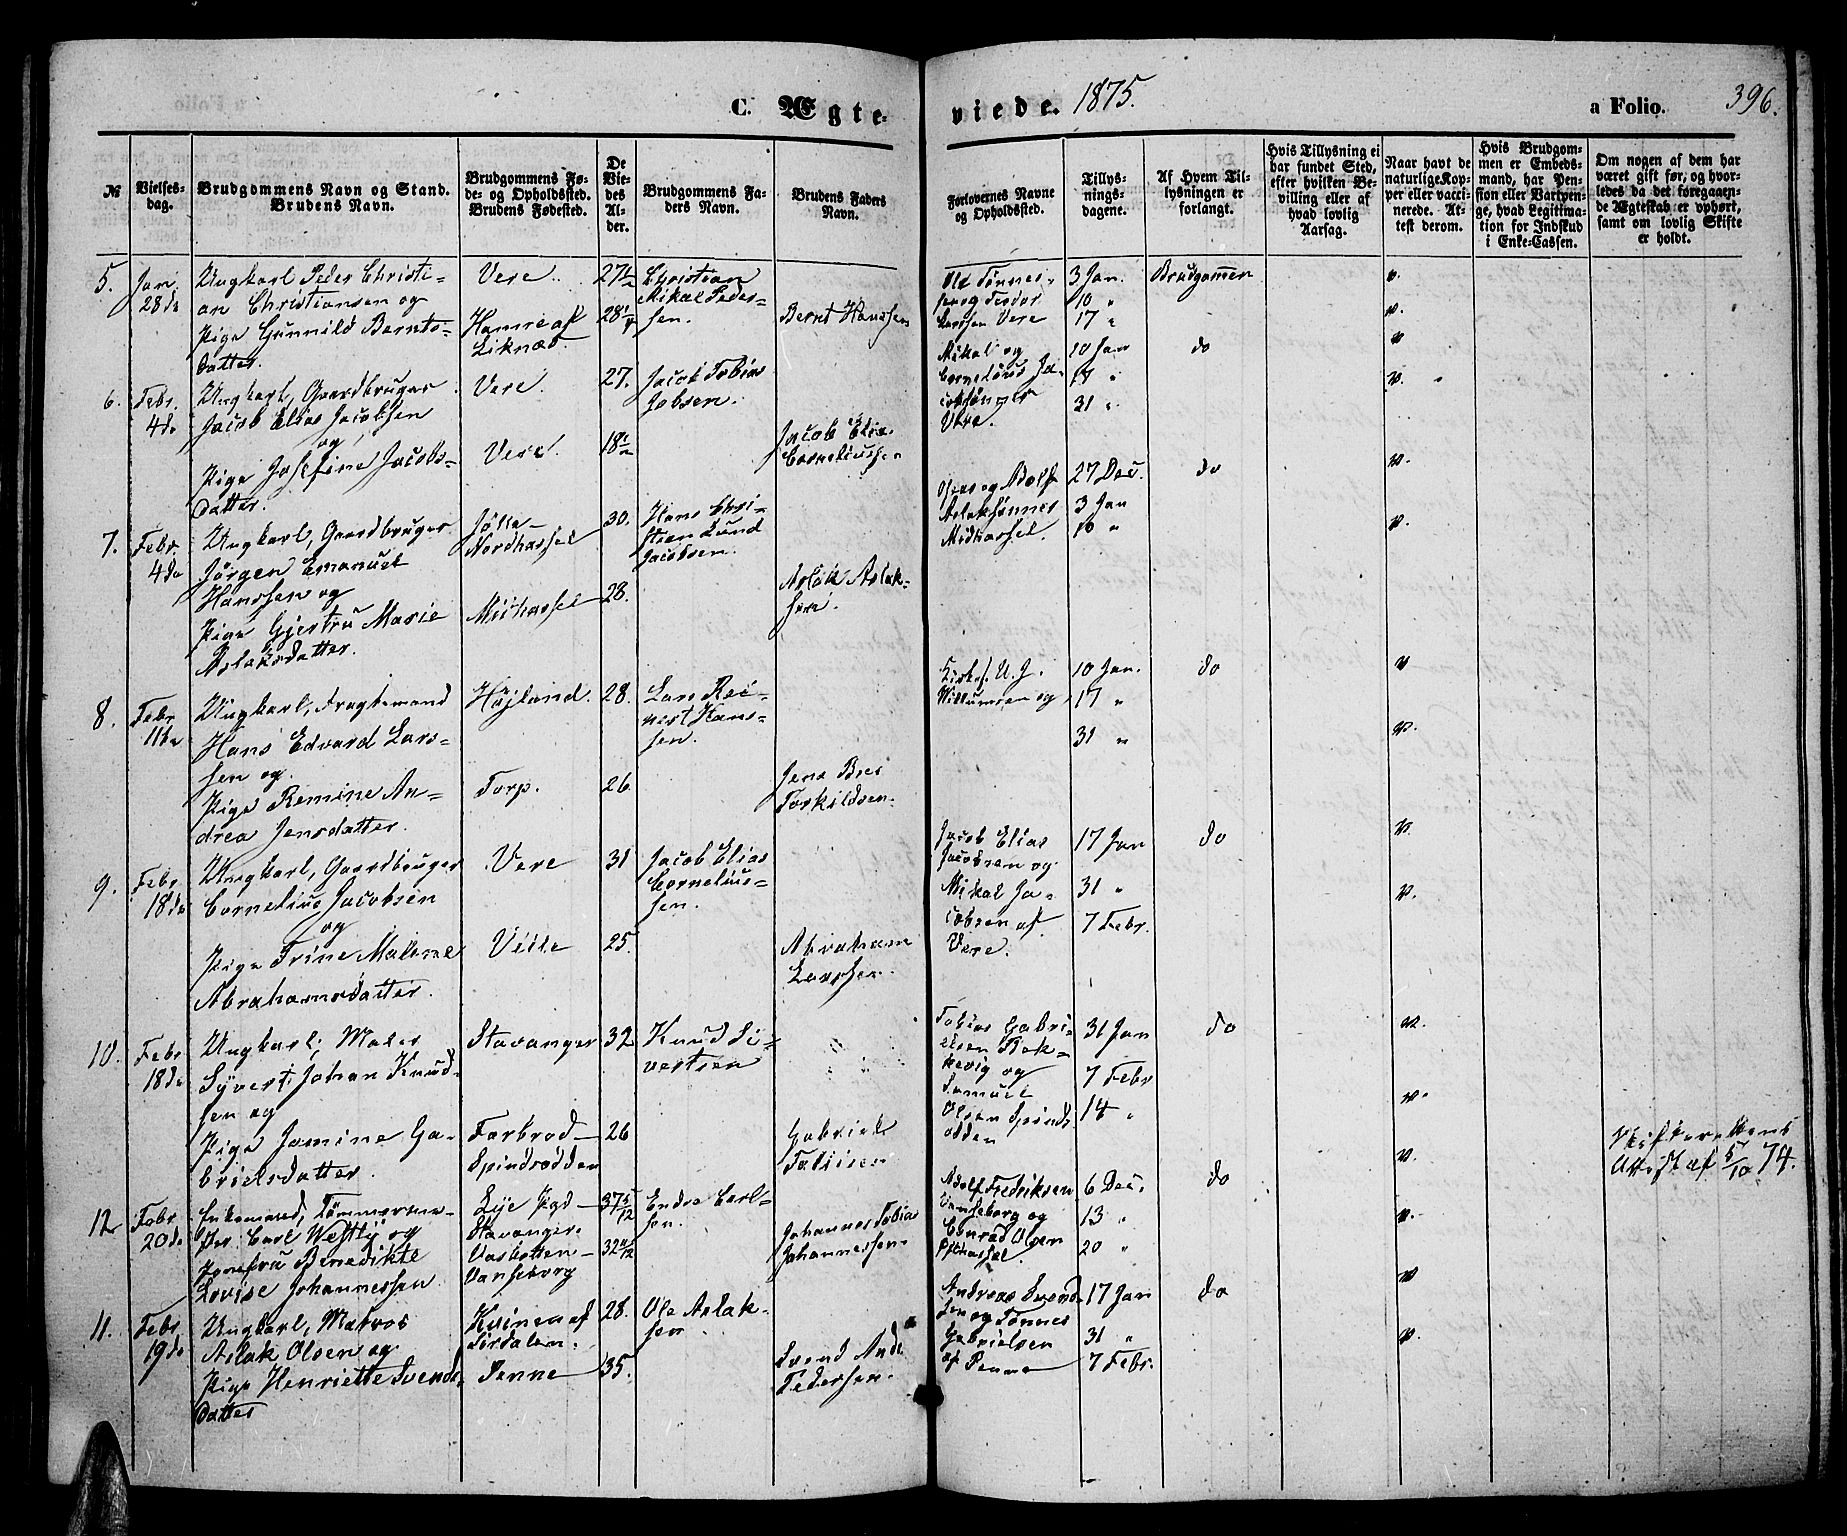 C. Ægte-
viede. 1875.
a Folio. 396.
№
Vielses-
dag.
Brudgommens Navn og Stand.
Brudens Navn.
Brudgommens Fø-
de- og Opholdssted.
Brudens Fødested.
De
Vie-
des
Al-
der.
Brudgommens Fa-
ders Navn.
Brudens Faders
Navn.
Forlovernes Navne
og Opholdssted.
Tillys-
nings-
dagene.
Af Hvem Til-
lysningen er
forlangt.
Hvis Tillysning ei
har fundet Sted,
efter hvilken Be-
villing eller af
hvad lovlig
Aarsag.
Naar havt de
naturlige Kop-
per eller vacci-
nerede. At-
test derom.
Hvis Brudgom-
men er Embeds-
mand, har Pen-
sion eller Vartpen-
ge, hvad Legitima-
tion for Indskud
i Enke-Cassen.
Om nogen af dem har
været gift før, og hvor-
ledes da det foregaaen-
de Ægteskab er ophørt,
samt om lovlig Skifte
er holdt.
5.
Jan.
28de
Ungkarl Peder Christi-
an Christiansen og
Pige Gunnild Bernts-
datter.
Vere
Hamre af
Liknæs.
27 1/2
28 1/4
Christian
Mikal Peder-
sen.
Bernt Hanssen
Larssen Vere
3 Jan.
10 "
17 "
Brudgommen
v.
v.
6.
Febr.
4de
Ungkarl, Gaardbruger
Jacob Elias Jacobsen
og
Pige Josefine Jacobs-
datter.
Vere.
Vere.
27.
18 1/2
Jacob Tobias
Jobsen.
Jacob Elias
Corneliussen
Mikal og
Cornelius Ja-
cobsønner
Vere.
10 Jan
17 "
31 "
do
v
v.
7.
Febr.
4de
Ungkarl, Gaardbruger
Jørgen Emanuel
Hanssen og
Pige Gjertru Marie
Aslaksdatter.
Jølle-
Nordhassel
Midhassel
30.
28.
Hans Chri-
stian Lund
Jacobsen.
Aslak Aslak-
sen.
og Adolf
Aslaksønner
Midhassel.
27 Dec.
3 Jan
10 "
do
v.
v.
8.
Febr
11te
Ungkarl, Fragtemand
Hans Edvard Lars-
sen og
Pige Remine An-
drea Jensdatter.
Højland.
Torp.
28.
26
Lars Rei-
nert Hans-
sen.
Jens Bree
Torkildsen.
Kirks. U. J.
Willumsen og
10 Jan.
17 "
31 "
do
v
v.
9.
Febr
18de
Ungkarl, Gaardbruger
Cornelius Jacobsen
og
Pige Trine Maline
Abrahamsdatter.
Vere
31
25.
Jacob Elias
Cornelius-
sen.
Abraham
Larssen.
Jacob Elias
Jacobsen og
Mikal Ja-
cobsen af
Vere.
17 Jan
31 "
7 Febr.
do
v.
v.
10.
Febr
18de
Ungkarl, Maler
Syvert Johan Knud-
sen og
Pige Jomine Ga-
brielsdatter.
Stavanger
Farbrod-
Spindsodden
32
26
Knud Si-
vertsen
Gabriel
Tobiisen
Tobias Gabri-
elsen Rek-
kevig og
Samuel
Olsen Spinds-
odden
31 Jan
7 Febr
14 "
do
v.
v.
12
Febr
20de
Enkemand, Tømmerma-
Per. Carl Westly og
Jomfru Benedikte
Lovise Johannessen
Lye Pgd-
Stavanger-
Vanseborg
37 5/12
32 11/12
Endre Carl-
sen.
Johannes Tobias
Johannessen.
Adolf Fredriksen
Vanseborg og
Conrad Olsen
6 Dec.
13 "
20 "
do
v.
v.
Skifterettens
Attest af 5/10 74.
11.
Febr
19de
Ungkarl, Matros
Aslak Olsen og
Pige Henriette Svends-
datter
Kvinen af
Sirdalen.
Penne
28.
35.
Ole Aslak-
sen
Svend And.
Pedersen.
Andreas Svend-
sen og Tønnes
Gabrielsen
af Penne
17 Jan
31 "
7 Febr.
do
v
v.